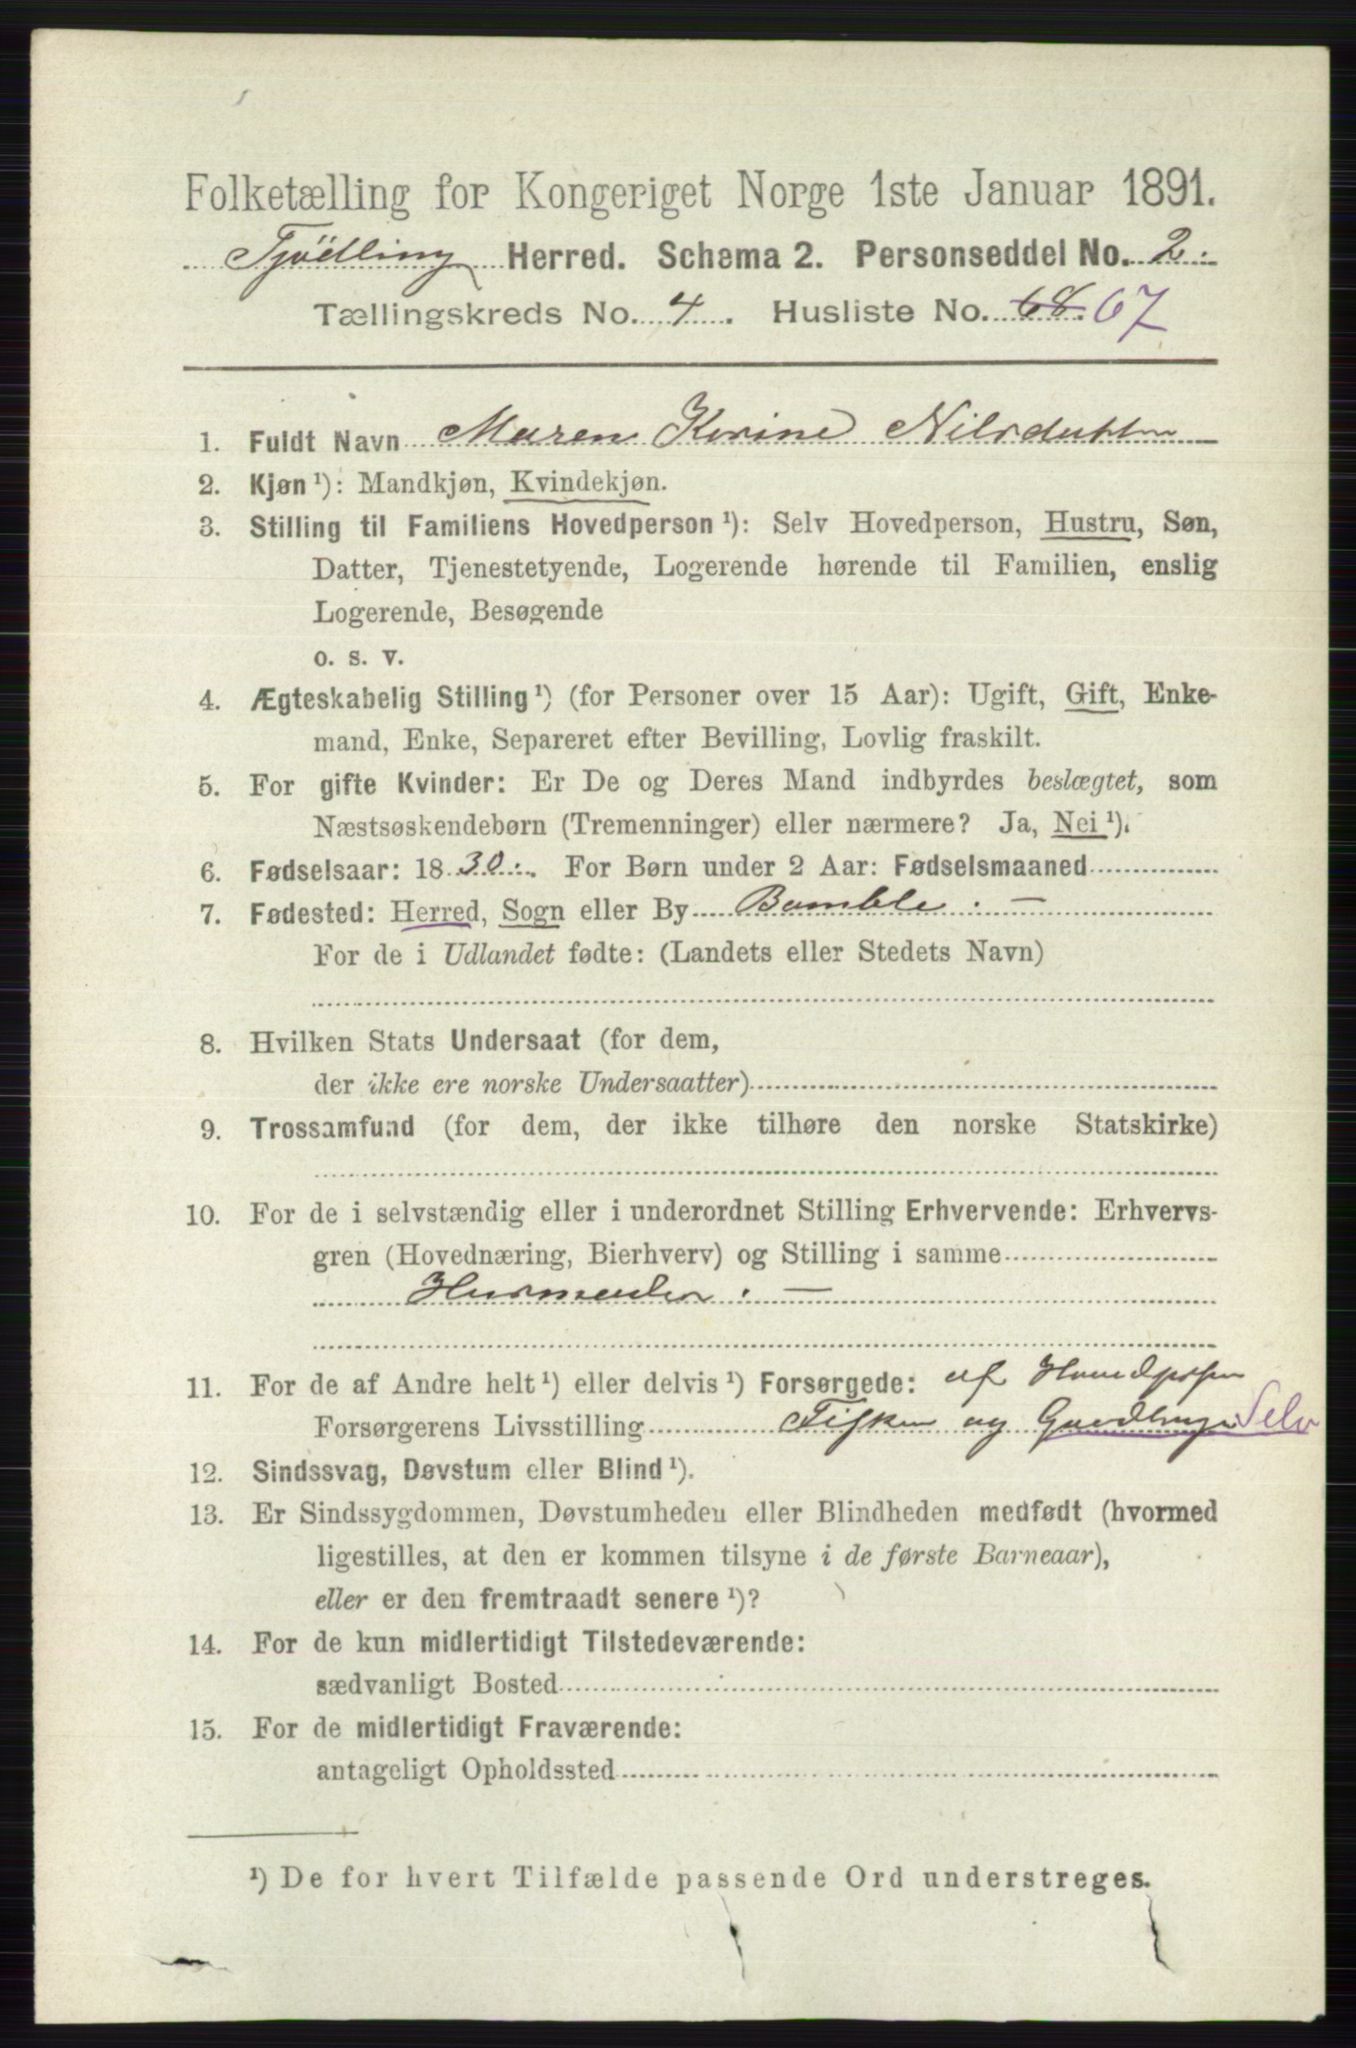 Folketælling for Kongeriget Norge 1ste Januar 1891.
Tjödling Herred. Schema 2. Personseddel No. 2.
Tællingskreds No. 4. Husliste No. 68. 67
1. Fuldt Navn Maren Kirine Nilsdatter
2. Kjøn ¹): Mandkjøn, Kvindekjøn.
3. Stilling til Familiens Hovedperson ¹): Selv Hovedperson, Hustru, Søn,
Datter, Tjenestetyende, Logerende hørende til Familien, enslig
Logerende, Besøgende
o. s. v.
4. Ægteskabelig Stilling ¹) (for Personer over 15 Aar): Ugift, Gift, Enke-
mand, Enke, Separeret efter Bevilling, Lovlig fraskilt.
5. For gifte Kvinder: Er De og Deres Mand indbyrdes beslægtet, som
Næstsøskendebørn (Tremenninger) eller nærmere? Ja, Nei ¹).
6. Fødselsaar: 1830. For Børn under 2 Aar: Fødselsmaaned
7. Fødested: Herred, Sogn eller By Bamble. —
For de i Udlandet fødte: (Landets eller Stedets Navn)
8. Hvilken Stats Undersaat (for dem,
der ikke ere norske Undersaatter)
9. Trossamfund (for dem, der ikke tilhøre den norske Statskirke)
10. For de i selvstændig eller i underordnet Stilling Erhvervende: Erhvervs-
gren (Hovednæring, Bierhverv) og Stilling i samme
: —
11. For de af Andre helt ¹) eller delvis ¹) Forsørgede: af
Forsørgerens Livsstilling Fisker og Gaardbruger Selv
12. Sindssvag, Døvstum eller Blind ¹).
13. Er Sindssygdommen, Døvstumheden eller Blindheden medfødt (hvormed
ligestilles, at den er kommen tilsyne i de første Barneaar),
eller er den fremtraadt senere ¹)?
14. For de kun midlertidigt Tilstedeværende:
sædvanligt Bosted
15. For de midlertidigt Fraværende:
antageligt Opholdssted
¹) De for hvert Tilfælde passende Ord understreges.